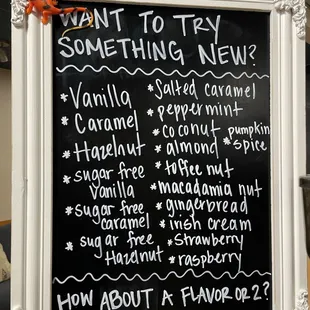 WANT TO TRY
SOMETHING NEW?
* Vanilla
* Caramel
* Hazelnut
* sugar free
Vanilla
* sugar free
caramel
* sugar free
Hazelnut
* Salted caramel
* peppermint
* coconut
* almond
* toffee nut
* macadamia nut
* gingerbread
* irish cream
* strawberry
* raspberry
* pumpkin
spice
HOW ABOUT A FLAVOR OR 2?